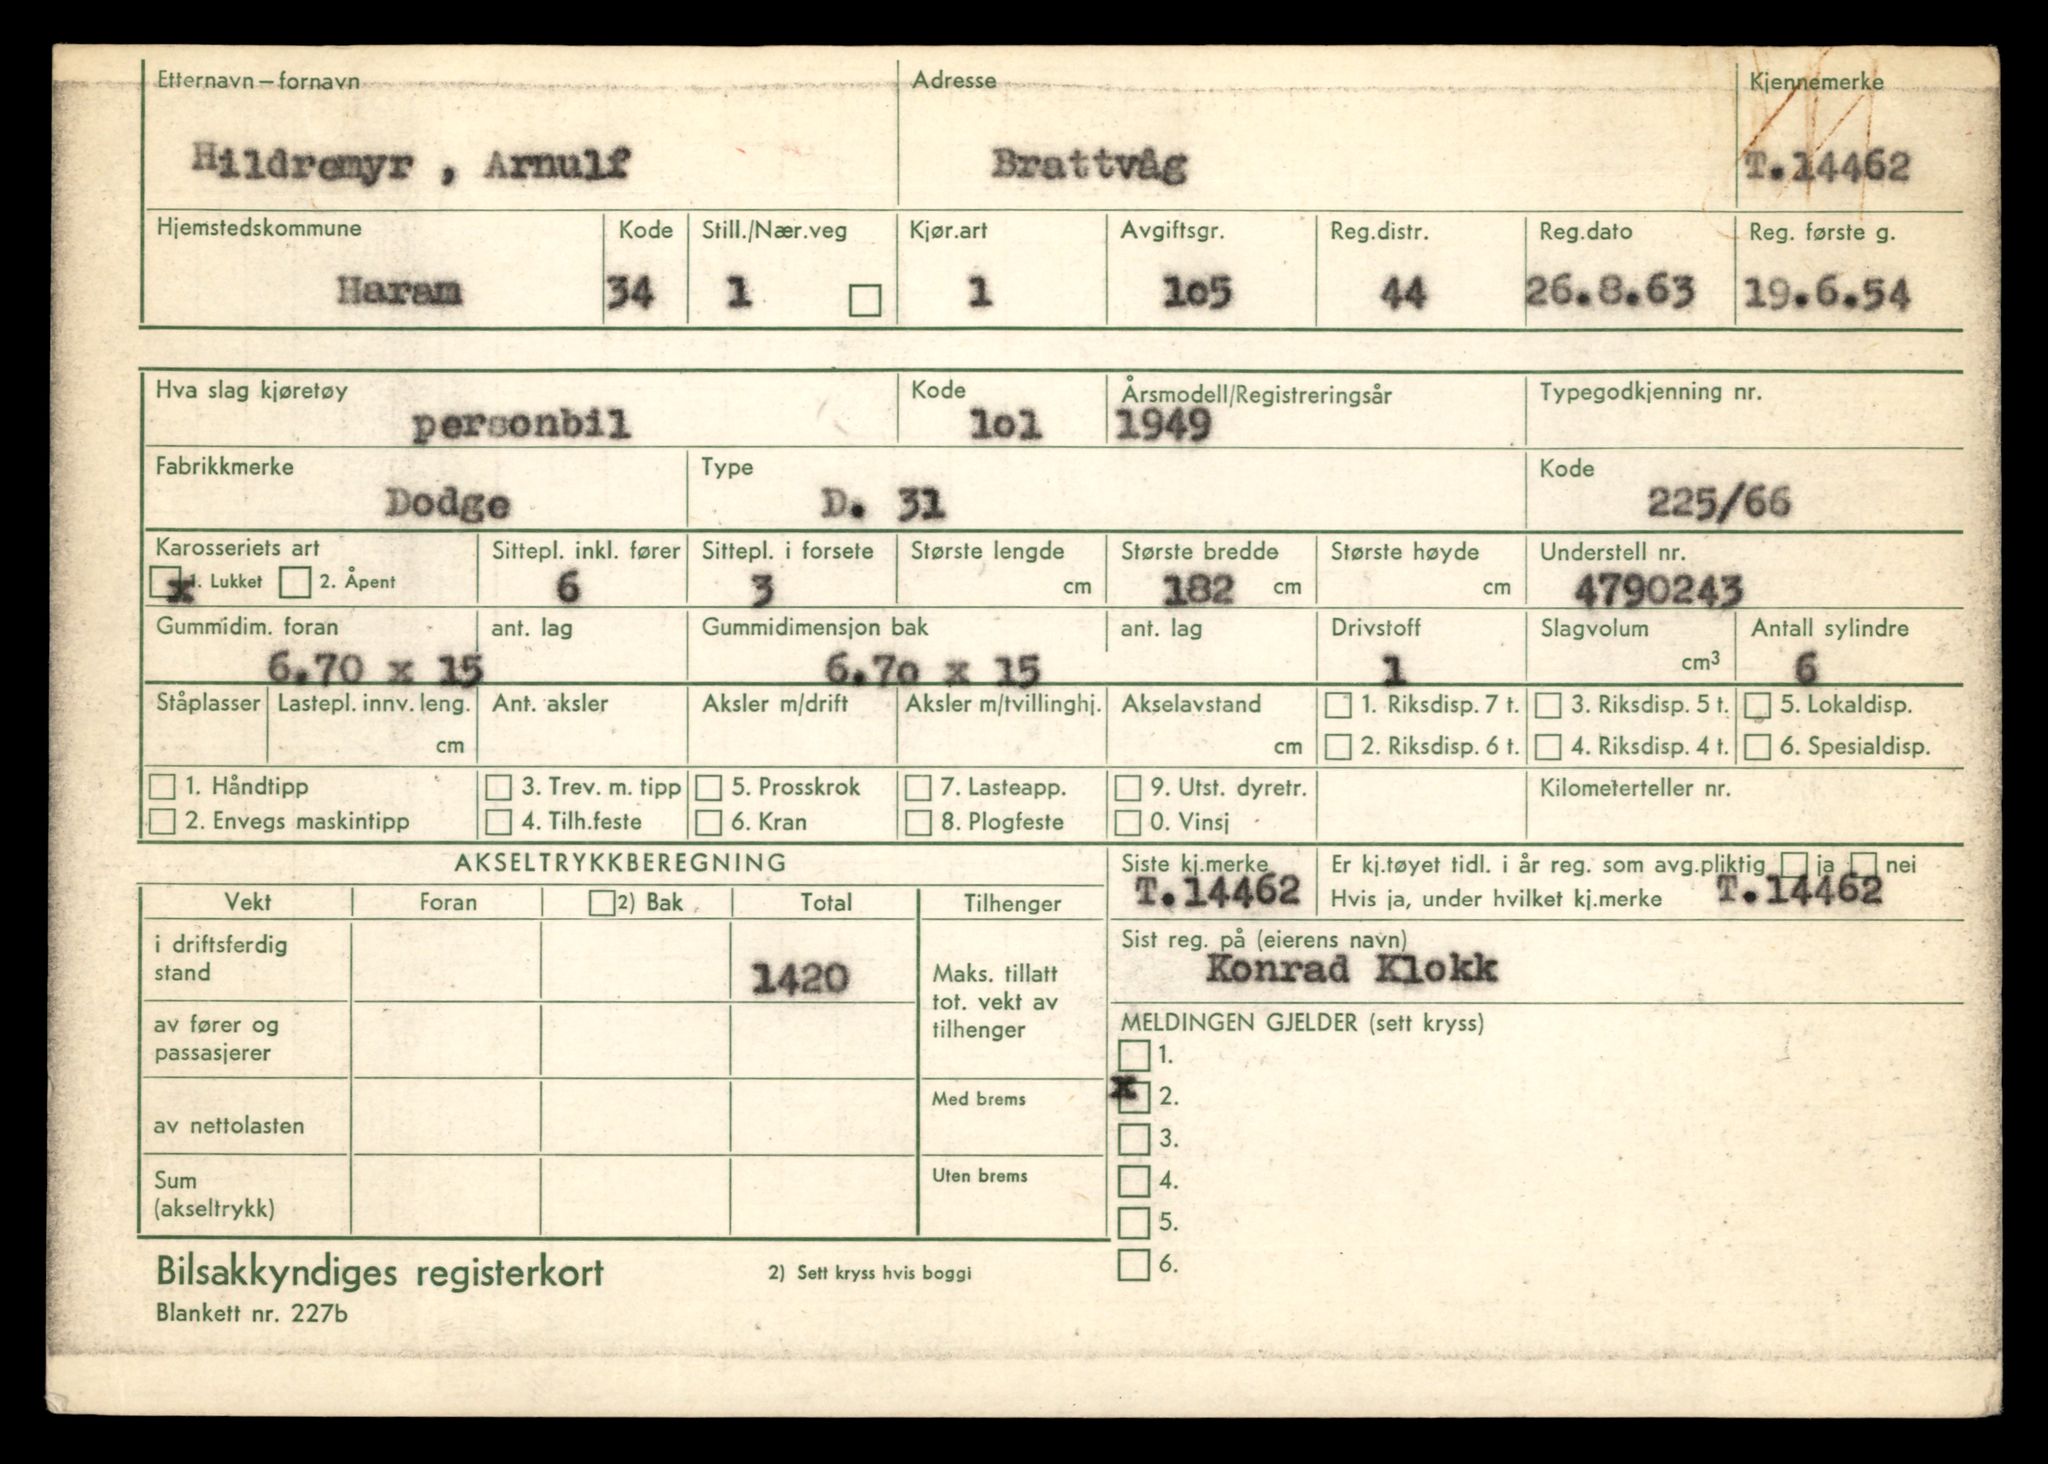 Etternavn – fornavn Adresse Kjennemerke
Hildremyr , Arnulf Brattvåg T.14462
Hjemstedskommune Kode Still./Nær.veg Kjør.art Avgiftsgr. Reg.distr. Reg.dato Reg. første g.
Haram 34 1 1 1o5 44 26.8.63 19.6.54
Hva slag kjøretøy Kode Årsmodell/Registreringsår Typegodkjenning nr.
personbil 1o1 1949
Fabrikkmerke Type Kode
Dodge D. 31 225/66
Karosseriets art Sittepl. inkl. fører Sittepl. i forsete Største lengde Største bredde Største høyde Understell nr.
x 1. Lukket 2. Åpent 6 3 cm 182 cm cm 4790243
Gummidim. foran ant. lag Gummidimensjon bak ant. lag Drivstoff Slagvolum Antall sylindre
6.70 x 15 6.7o x 15 1 cm3 6
Ståplasser Lastepl. innv. leng. Ant. aksler Aksler m/drift Aksler m/tvillinghj. Akselavstand 1. Riksdisp. 7 t. 3. Riksdisp. 5 t. 5. Lokaldisp.
cm cm 2. Riksdisp. 6 t. 4. Riksdisp. 4 t. 6. Spesialdisp.
1. Håndtipp 3. Trev. m. tipp 5. Prosskrok 7. Lasteapp. 9. Utst. dyretr. Kilometerteller nr.
2. Envegs maskintipp 4. Tilh.feste 6. Kran 8. Plogfeste 0. Vinsj
AKSELTRYKKBEREGNING Siste kj.merke Er kj.tøyet tidl. i år reg. som avg.pliktig ja nei
T.14462 Hvis ja, under hvilket kj.merke T.14462
Vekt Foran 2) Bak Total Tilhenger
Sist reg. på (eierens navn)
Konrad Klokk
i driftsferdig
stand 1420 Maks. tillatt
tot. vekt av
tilhenger
av fører og
passasjerer
MELDINGEN GJELDER (sett kryss)
1.
x 2.
Med brems
av nettolasten
3.
Uten brems
4.
Sum
(akseltrykk)
5.
6.
Bilsakkyndiges registerkort 2) Sett kryss hvis boggi
Blankett nr. 227b